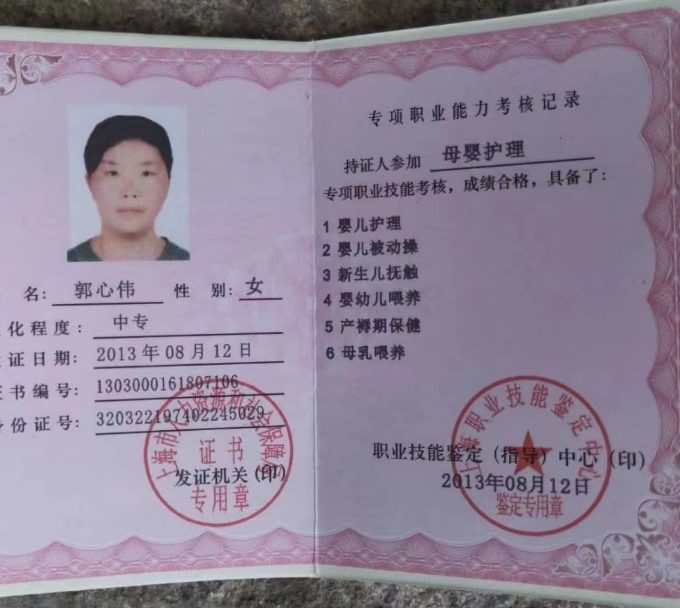 名：郭心伟 性 别：女
化程度：中专
证日期：2013 年 08 月 12 日
书编号：1303000161807106
份证号：320322197402245029
上海市人力资源和社会保障局
证书
发证机关（印）
专用章
专项职业能力考核记录
持证人参加 母婴护理
专项职业技能考核，成绩合格，具备了：
1 婴儿护理
2 婴儿被动操
3 新生儿抚触
4 婴幼儿喂养
5 产褥期保健
6 母乳喂养
上海职业技能鉴定中心
职业技能鉴定（指导）中心（印）
2013年08月12日
鉴定专用章